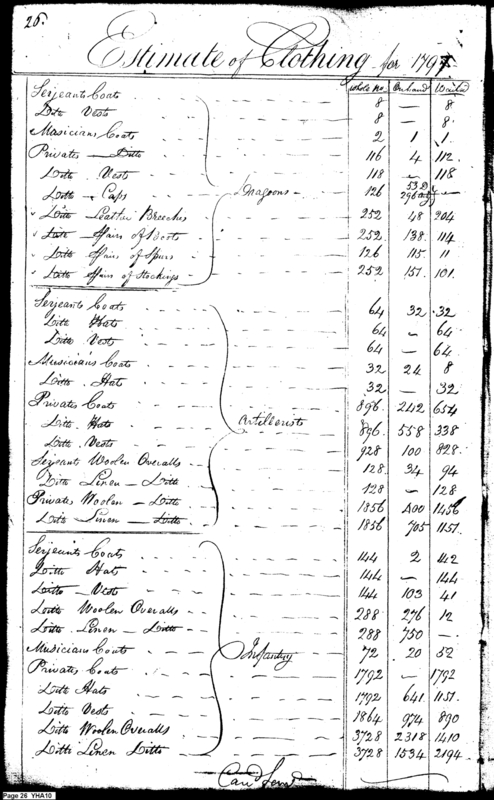 26.
Estimate of Clothing for 1797
Whole No. On hand Wanted
Serjeants Coats 8 — 8
Ditto Vests 8 — 8.
Musicians Coats 2 1 1.
Privates — Ditto 116 4 112.
Ditto Vests 118 — 118
Ditto — Caps Dragoons 126 53 D 296 —
Ditto — Leather Breeches 252 48 204
Ditto Pairs of Boots 252. 138 114
Ditto Pairs of Spurs 126 115 11
Ditto Pairs of Stockings 252 151 101.
Serjeants Coats 64 32 32
Ditto Hats 64 — 64
Ditto Vests 64 — 64
Musicians Coats 32 24 8
Ditto Hats 32 — 32
Privates Coats 896. 242 654
Ditto Hats Artillerists 896 558 338
Ditto Vests 928 100 828.
Serjeants Woolen Overalls 128 34 94
Ditto Linen — Ditto 128 — 128
Privates Woolen — Ditto 1856 400 1456
Ditto Linen — Ditto 1856 705 1151.
Serjeants Coats 144 2 142
Ditto Hats 144 — 144
Ditto — Vests 144 103 41
Ditto Woolen Overalls 288 276 12
Ditto Linen — Ditto 288 750 —
Musicians Coats Infantry 72 20 52
Privates Coats 1792 — 1792
Ditto Hats 1792 641 1151.
Ditto Vests 1864 974 890
Ditto Woolen Overalls 3728 2318 1410
Ditto Linen Ditto 3728 1534 2194
Card Forwd
Page 26 YHA10